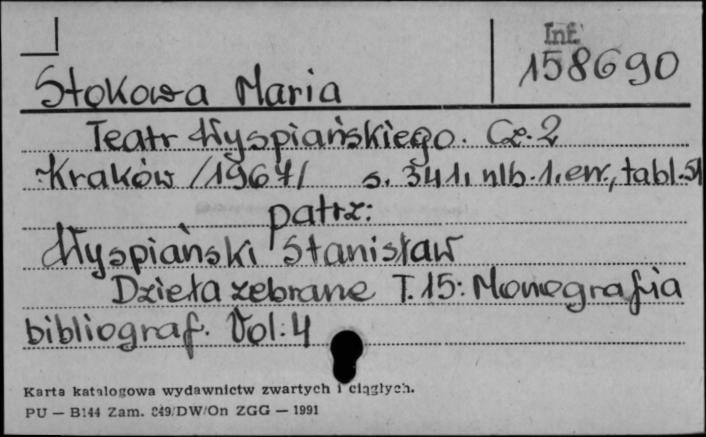 Inf.
158690
Stokowa Maria
Teatr Wyspiańskiego. Cz. 2
Kraków /1967/ s. 341, nlb. 1, err., tabl. 51
patrz:
Wyspiański Stanisław
Dzieła zebrane T. 15: Monografia
bibliograf. Vol: 4
Karta katalogowa wydawnictw zwartych i ciągłych.
PU — B144 Zam. 849/DW/On ZGG — 1991